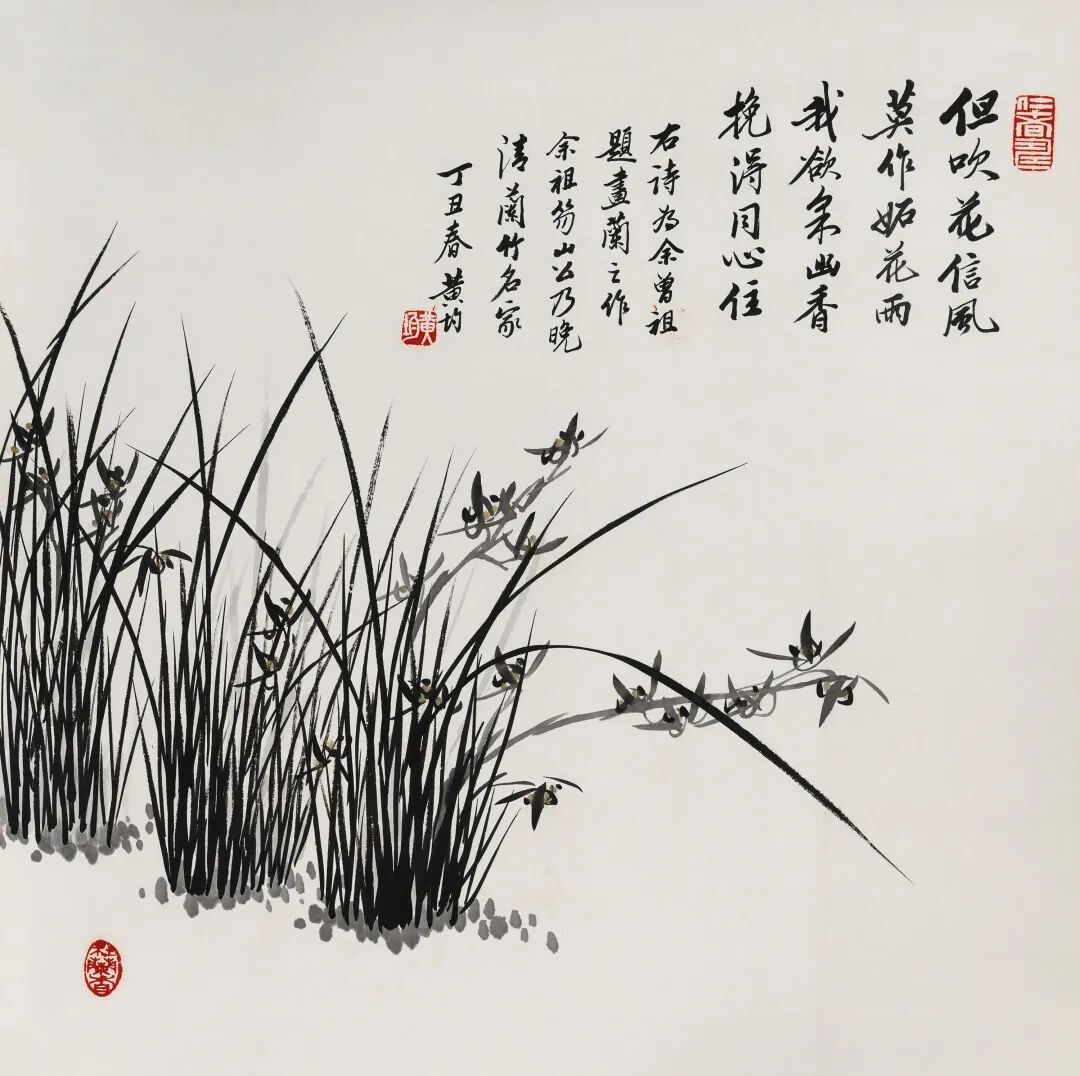 但吹花信風
莫作妬花雨
我欲采幽香
挽得同心住
右詩為余曾祖
題畫蘭之作
余祖笏山公乃晚
清蘭竹名家
丁丑春黄均
黄均